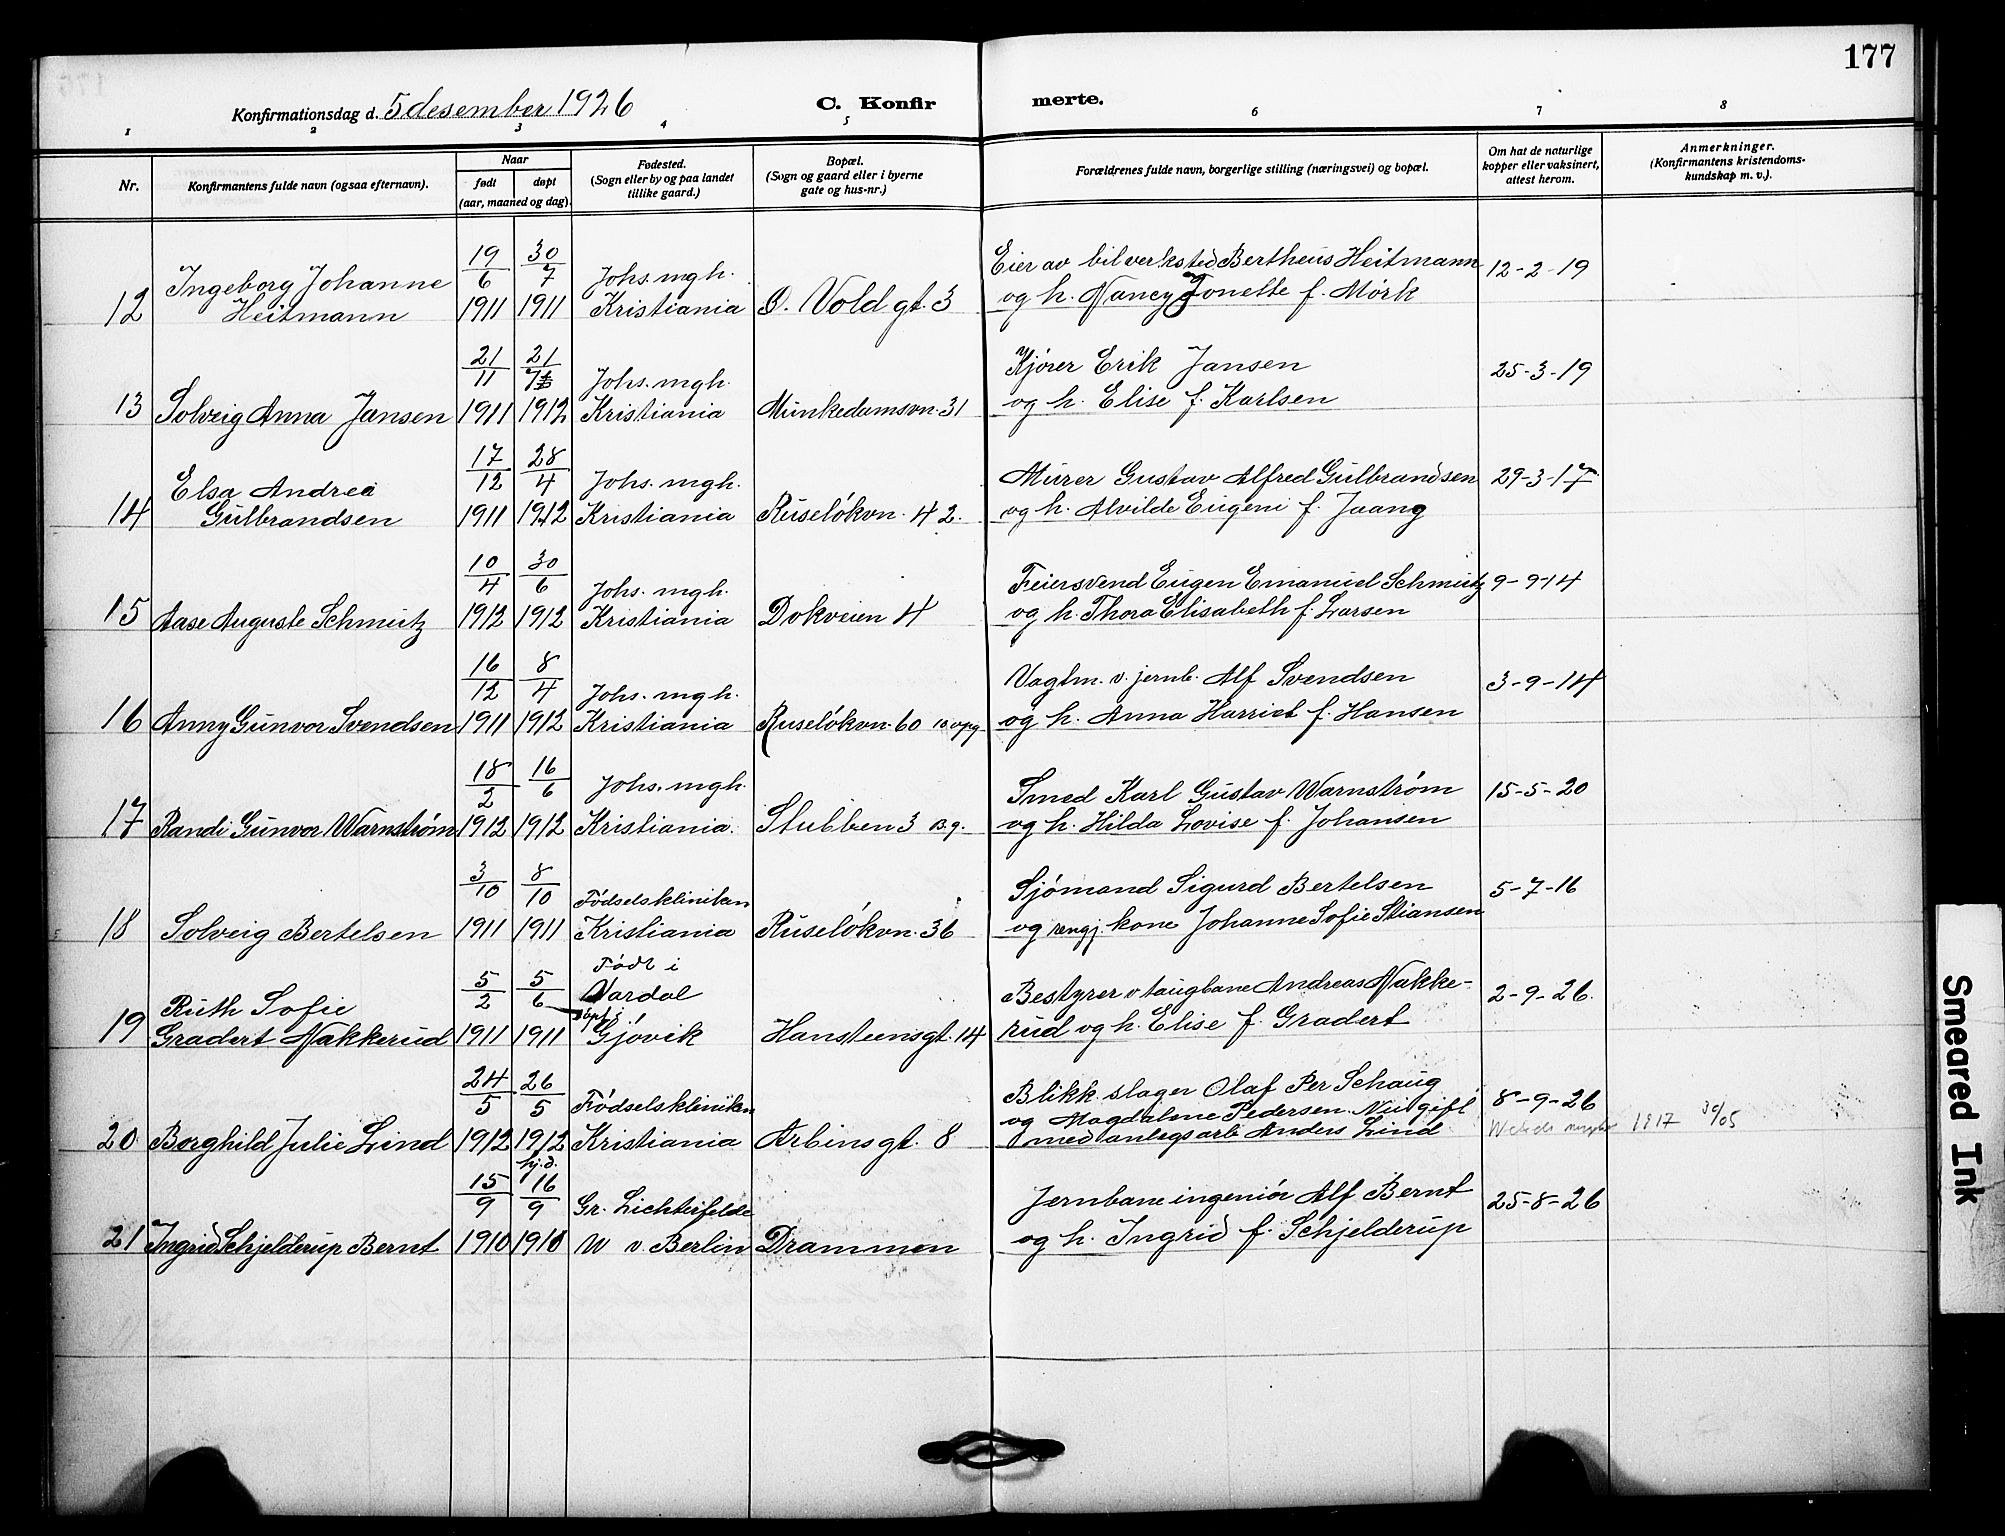 177
Konfirmationsdag d. 5 desember 1926
C. Konfir merte.
1 2 3 4 5 6 7 8
Nr.
Konfirmantens fulde navn (ogsaa efternavn).
Naar
født døpt
(aar, maaned og dag).
Fødested.
(Sogn eller by og paa landet
tillike gaard.)
Bopæl.
(Sogn og gaard eller i byerne
gate og hus-nr.)
Forældrenes fulde navn, borgerlige stilling (næringsvei) og bopæl.
Om hat de naturlige
kopper eller vaksinert,
attest herom.
Anmerkninger.
(Konfirmantens kristendoms-
kundskap m. v.).
19/6 30/7 Johs. mgh. Eier av bilverksted Bertheus Heitmann 12-2-19
12 Ingeborg Johanne
Heitmann 1911 1911 Kristiania O. Vold gt. 3 og h. Nancy Jonette f. Mörk
21/11 21/7 Johs. mgh. Kjörer Erik Jansen 25-3-19
13 Solveig Anna Jansen 1911 1912 Kristiania Munkedamsvn. 31 og h. Elise f. Karlsen
17/12 28/4 Johs. mgh. Murer Gustav Alfred Gulbrandsen 29-3-17
14 Elsa Andrea
Gulbrandsen 1911 1912 Kristiania Ruselökvn. 42. og h. Alvilde Eugeni f. Jaang
10/4 30/6 Johs. mgh. Feiersvend Eugen Emanuel Schmutz 9-9-14
15 Aase Auguste Schmutz 1912 1912 Kristiania Dokveien 4 og h. Thora Elisabeth f. Larsen
16/12 8/4 Johs. mgh. Vagtm. v. jernb. Alf Svendsen 3-9-14
16 Anny Gunvor Svendsen 1911 1912 Kristiania Ruselökvn. 60 og h. Anna Harriet f. Hansen
18/2 16/6 Johs. mgh. Smed Karl Gustav Warnström 15-5-20
17 Randi Gunvor Warnström 1912 1912 Kristiania. Stubben 3 B.g. og h. Hilda Lovise f. Johansen
3/10 8/10 Födselskliniken Sjömand Sigurd Bertelsen 5-7-16
18 Solveig Bertelsen 1911 1911 Kristiania Ruselökvn. 36 og rengj. kone Johanne Sofie Stiansen
5/2 5/6 Födt i
Vardal Bestyrer v taugbane Andreas Nakke- 2-9-26.
19 Ruth Sofie
Gradert Nakkerud 1911 1911 döpt i
Gjövik Hansteensgt. 14 rud og h. Elise f. Gradert
24/5 26/5 Födselskliniken Blikk. slager Olaf Per Schaug 8-9-26
og Magdalene Pedersen. Nu gift
20 Borghild Julie Lind 1912 1912 Kristiania Arbinsgt. 8 med anlegsarb Anders Lind 1917 30/05
hj.d.
15/9 16/9 Gr. Lichterfelde Jernbane ingeniör Alf Bernt 25-8-26
21 Ingrid Schjelderup Bernt 1910 1910 W v. Berlin Drammen og h. Ingrid f. Schjelderup
Smeared Ink